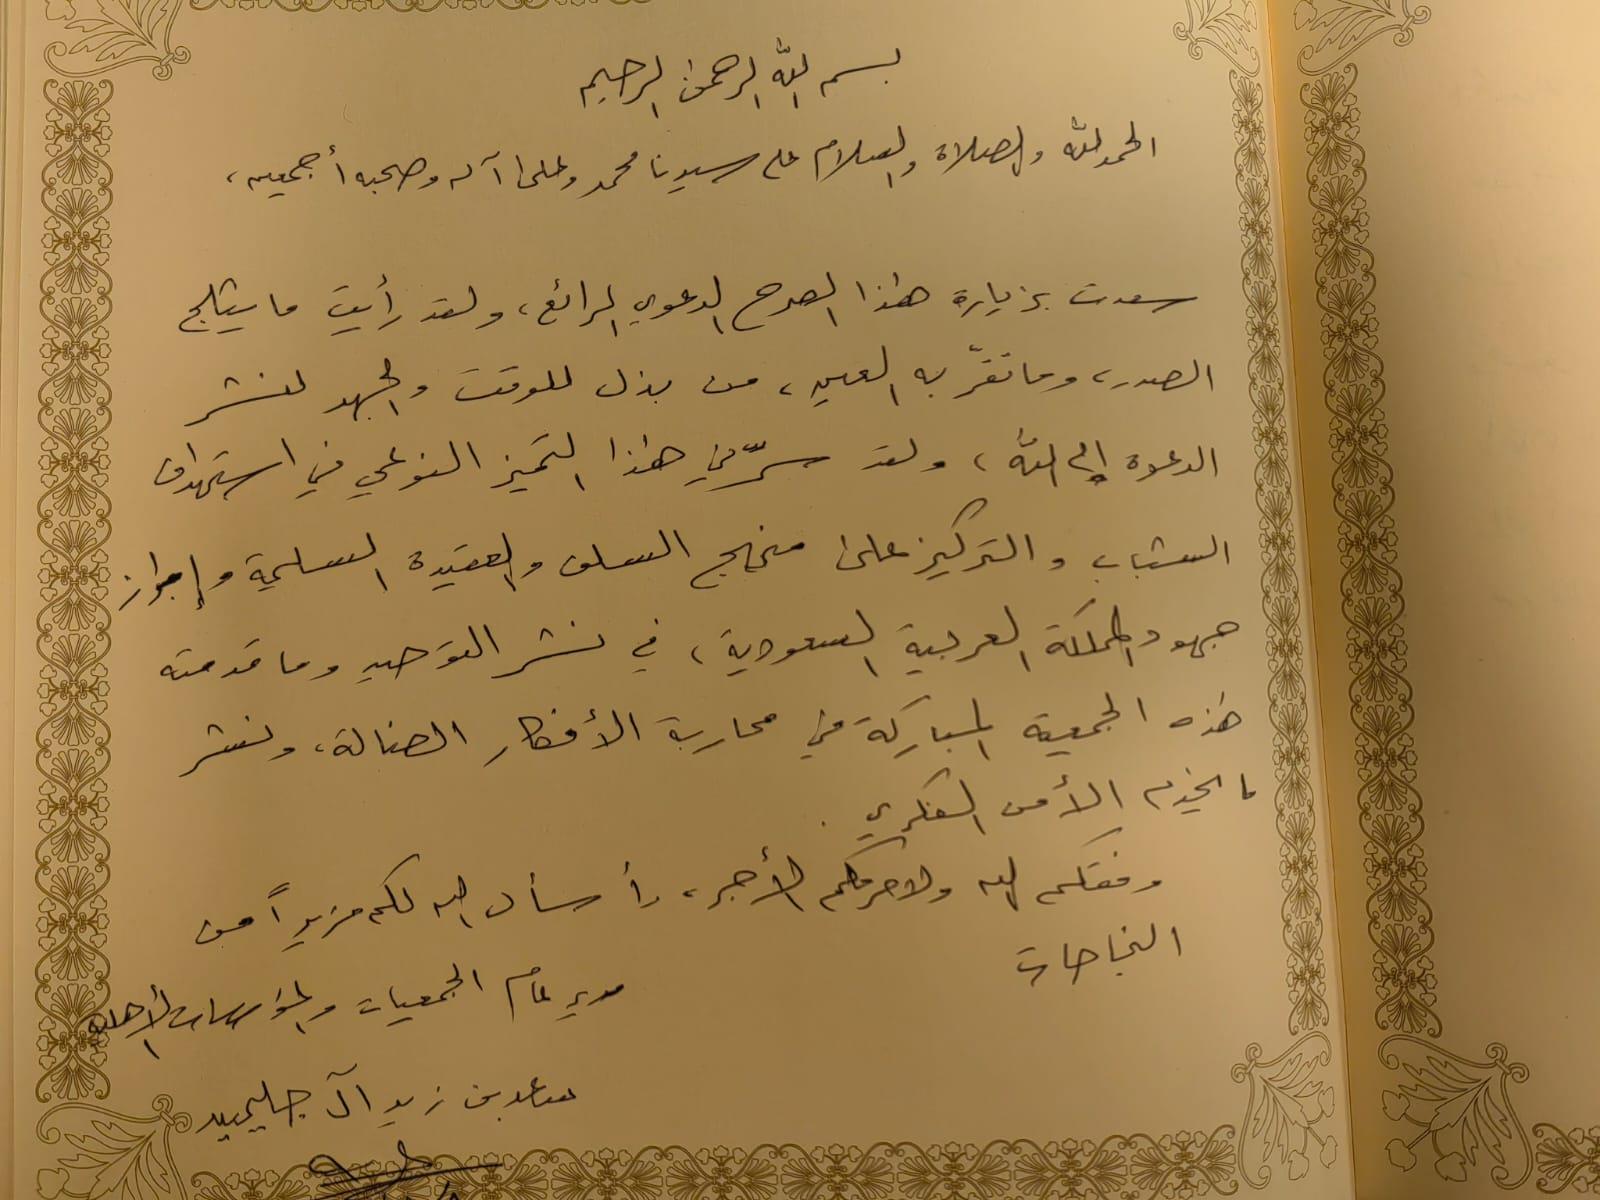 بسم الله الرحمن الرحيم
الحمد لله والصلاة والسلام على سيدنا محمد وعلى آله وصحبه أجمعين،
سعدت بزيارة هذا الصرح الدعوي الرائع، ولقد رأيت ما يثلج
الصدر، وما تقرّ به العين، من بذل للوقت والجهد لنشر
الدعوة إلى الله، ولقد سرّني هذا التميز النوعي في استهداف
الشباب والتركيز على منهج السلف والعقيدة السليمة وإبراز
جهود المملكة العربية السعودية، في نشر التوحيد وما قدمته
هذه الجمعية المباركة في محاربة الأفكار الضالة، ونشر
ما يخدم الأمن الفكري.
وفقكم الله ولا حرمكم الأجر، وأسأل الله لكم مزيداً من
النجاحات
مدير عام الجمعيات والمؤسسات الأهلية
بن زيد آل